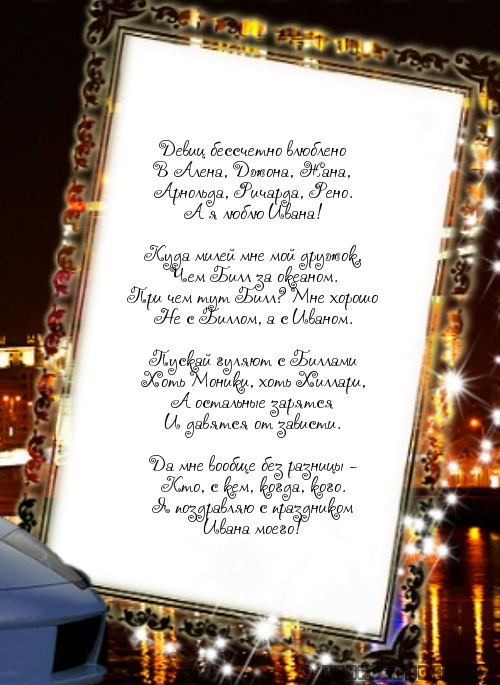 Девиц бессчетно влюблено
В Алена, Джона, Жана,
Арнольда, Ричарда, Рено.
А я люблю Ивана!
Куда милей мне мой дружок,
Чем Билл за океаном.
При чем тут Билл? Мне хорошо
Не с Биллом, а с Иваном.
Пускай гуляют с Биллами
Хоть Моники, хоть Хиллари,
А остальные зарятся
И давятся от зависти.
Да мне вообще без разницы –
Кто, с кем, когда, кого.
Я поздравляю с праздником
Ивана моего!